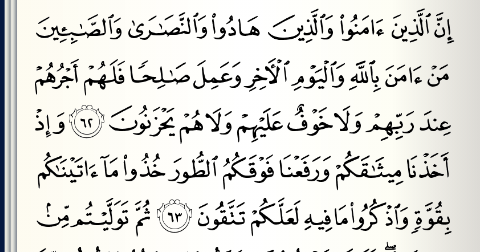 إِنَّ ٱلَّذِينَ ءَامَنُوا۟ وَٱلَّذِينَ هَادُوا۟ وَٱلنَّصَـٰرَىٰ وَٱلصَّـٰبِـِٔينَ
مَنْ ءَامَنَ بِٱللَّهِ وَٱلْيَوْمِ ٱلْـَٔاخِرِ وَعَمِلَ صَـٰلِحًا فَلَهُمْ أَجْرُهُمْ
عِندَ رَبِّهِمْ وَلَا خَوْفٌ عَلَيْهِمْ وَلَا هُمْ يَحْزَنُونَ ٦٢ وَإِذْ
أَخَذْنَا مِيثَـٰقَكُمْ وَرَفَعْنَا فَوْقَكُمُ ٱلطُّورَ خُذُوا۟ مَآ ءَاتَيْنَـٰكُم
بِقُوَّةٍ وَٱذْكُرُوا۟ مَا فِيهِ لَعَلَّكُمْ تَتَّقُونَ ٦٣ ثُمَّ تَوَلَّيْتُم مِّنۢ